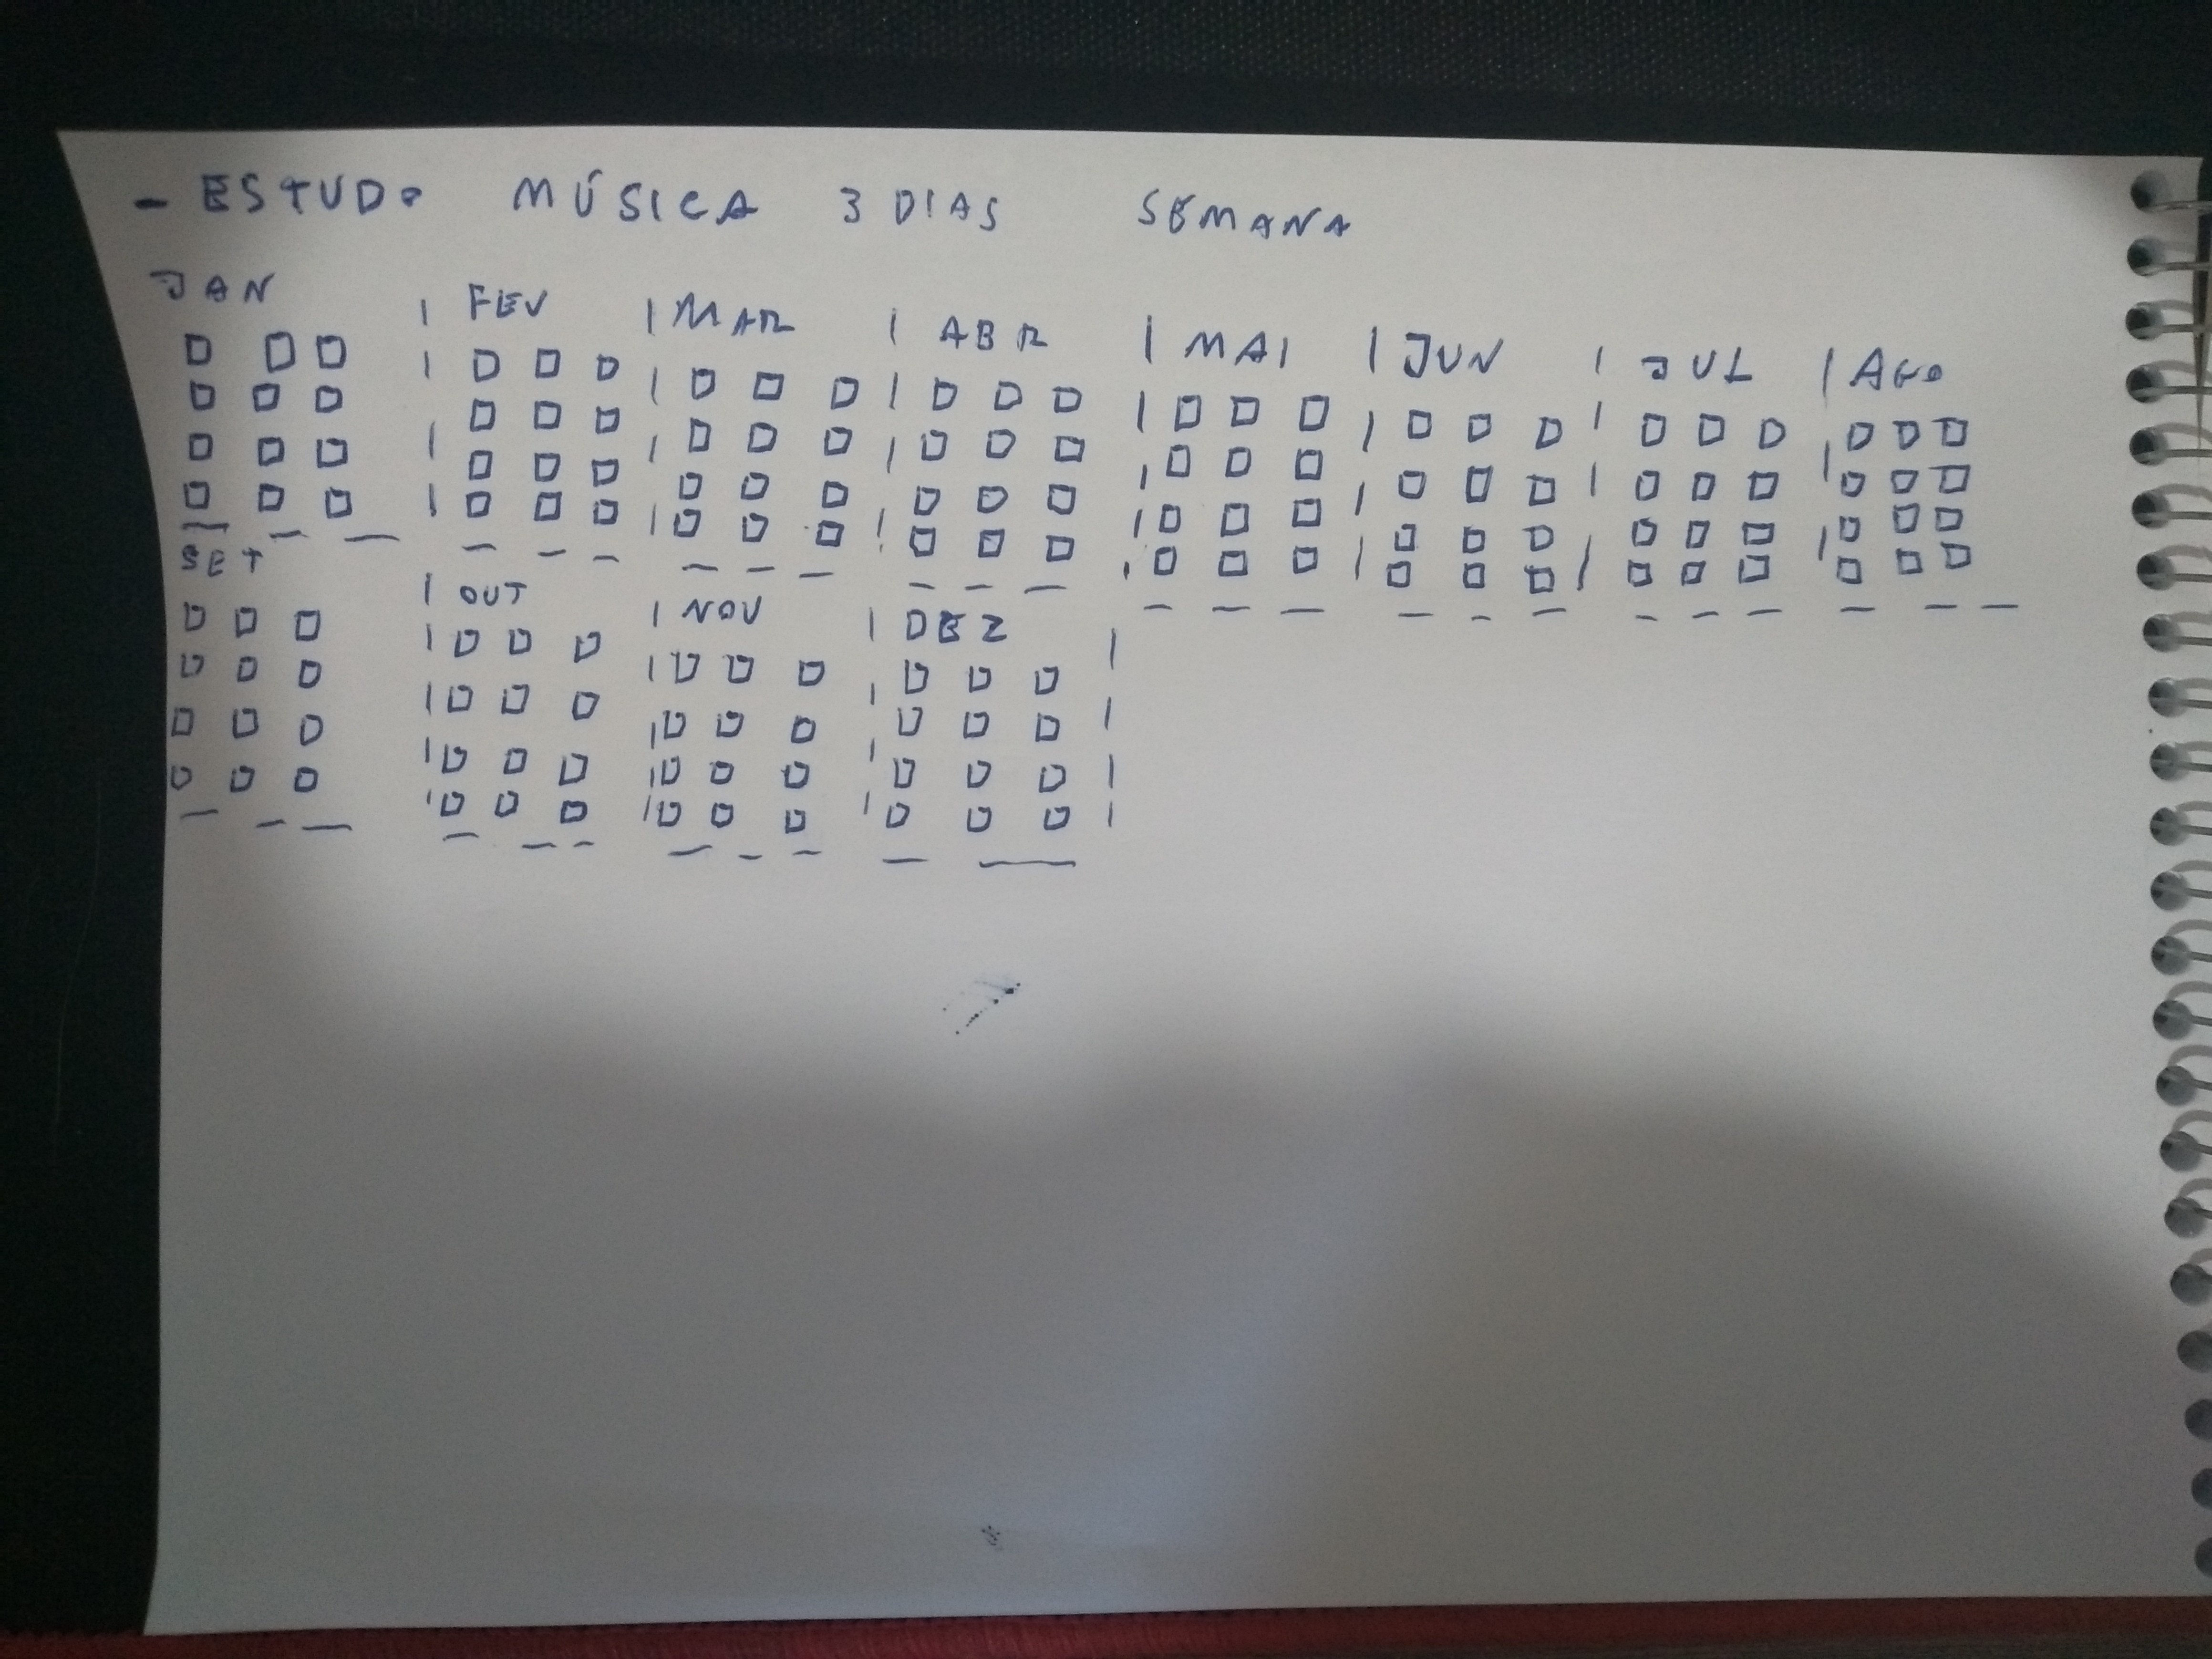 - ESTUDO MÚSICA 3 DIAS SEMANA
JAN | FEV | MAR | ABR | MAI | JUN | JUL | AGO
SET | OUT | NOV | DEZ |